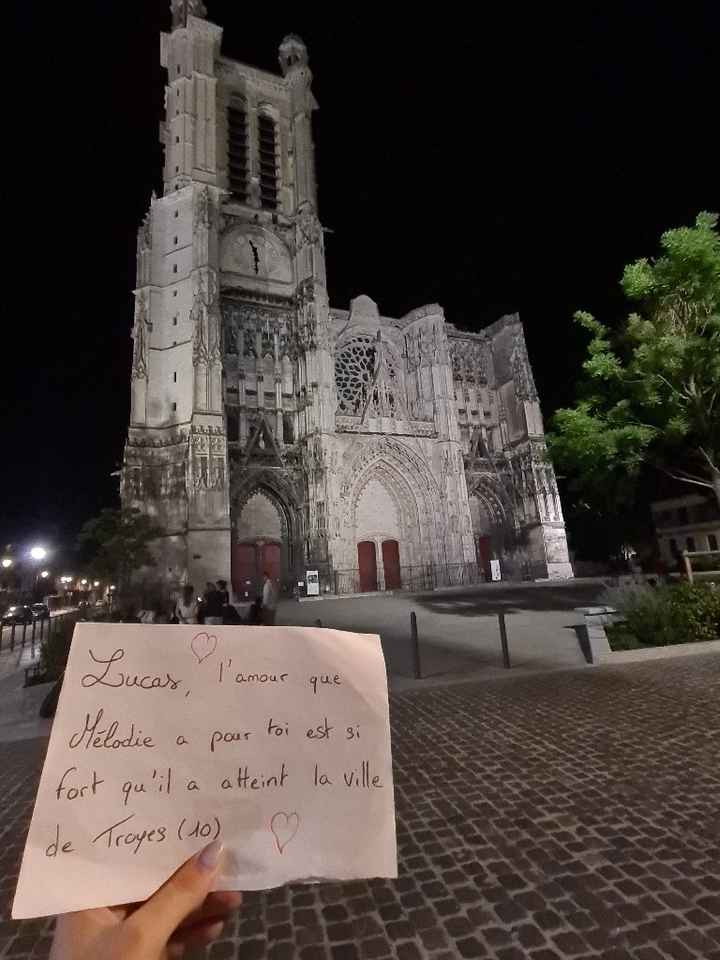 Lucas, l'amour que
Mélodie a pour toi est si
fort qu'il a atteint la ville
de Troyes (10)